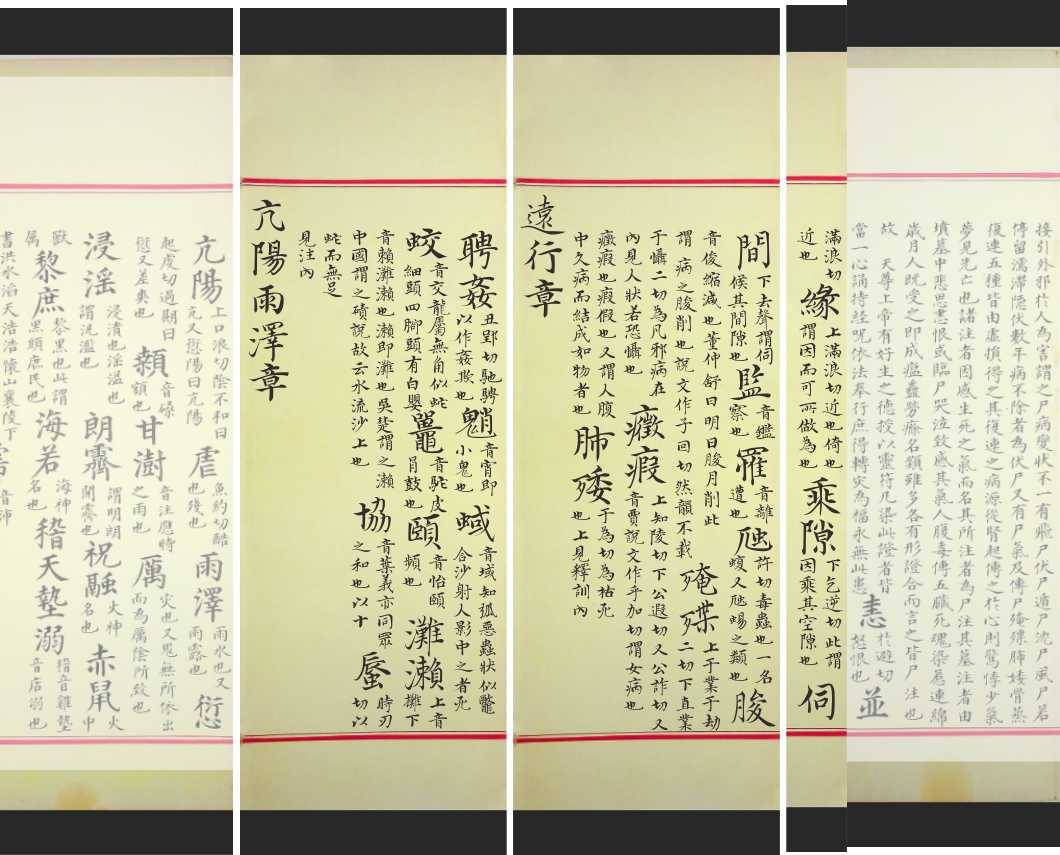 接引外邪於人為害謂之尸病變狀不一有飛尸伏尸遁尸沈尸風尸若
停留濡滯隱伏數年病不除者為伏尸又有尸氣及傳尸殗殜肺痿骨蒸
復連五種皆由虛損得之其復連之病源從腎起傳之於心則驚悸少氣
夢見先亡也諸注者因感生死之氣而名其所注者為尸注其墓注者由
墳墓中悲思恚恨或臨尸哭泣致感其氣人腹毒傳五臟死魂染惹連綿
歲月人既受之即成瘟蠱勞瘵名類雖多各有形證合而言之皆尸注也
故 天尊上帝有好生之德授以靈符凡染此證者皆
當一心誦持經呪依法奉行庶得轉灾為福永無此患 恚 於避切怒恨也 並
滿浪切近也 緣 上滿浪切近也倚也謂因而可所做為也 乘隙 下乞逆切此謂因乘其空隙也 伺
間 下去聲謂伺候其間隙也 監 音鑑察也 罹 音離遭也 虺 許切毒蟲也一名蝮又虺蜴之類也 朘
音俊縮減也董仲舒曰明日朘月削此謂 病之朘削也說文作子回切然韻不載 殗殜 上于業于劫二切下直業
于懾二切為凡邪病在內見人狀若恐懾也 癥瘕 上知陵切下公遐切又公詐切又音賈說文作乎加切謂女病也
癥瘕也瘕假也又謂人腹中久病而結成如物者也 肺痿 于為切為枯死也上見釋訓內
遠行章
聘姦 丑郢切馳騁以作姦欺也 魈 音宵即小鬼也 蜮 音域知狐惡蟲狀似鼈含沙射人影中之者死
蛟 音交龍屬無角似蛇細頸四脚頸有白嬰 鼉 音駝皮冐鼓也 頤 音怡頤頰也 灘瀨 上音攤下
音賴灘瀨也瀨即灘也吳楚謂之瀨中國謂之磧說故云水流沙上也 協 音葉義亦同眾之和也以十 蜃 時刃切以
蛇而無足見注內
亢陽雨澤章
亢陽 上口浪切陰不和曰亢又愆陽曰亢陽 虐 魚約切酷也殘也 雨澤 雨水也又雨露也 愆
起虔切過期曰愆又差爽也 顙 音磉額也 甘澍 音注應時之雨也 厲 灾也又鬼無所依出而為厲陰所致也
浸淫 浸漬也淫溫也謂汎濫也 朗霽 謂明朗開霽也 祝融 火神名也 赤鼠 火中
獸属 黎庶 黎黑也此謂黑頭庶民也 海若 海神名也 稽天墊溺 稽音雞墊音店溺也
書洪水滔天浩浩懷山襄陵下 音沛